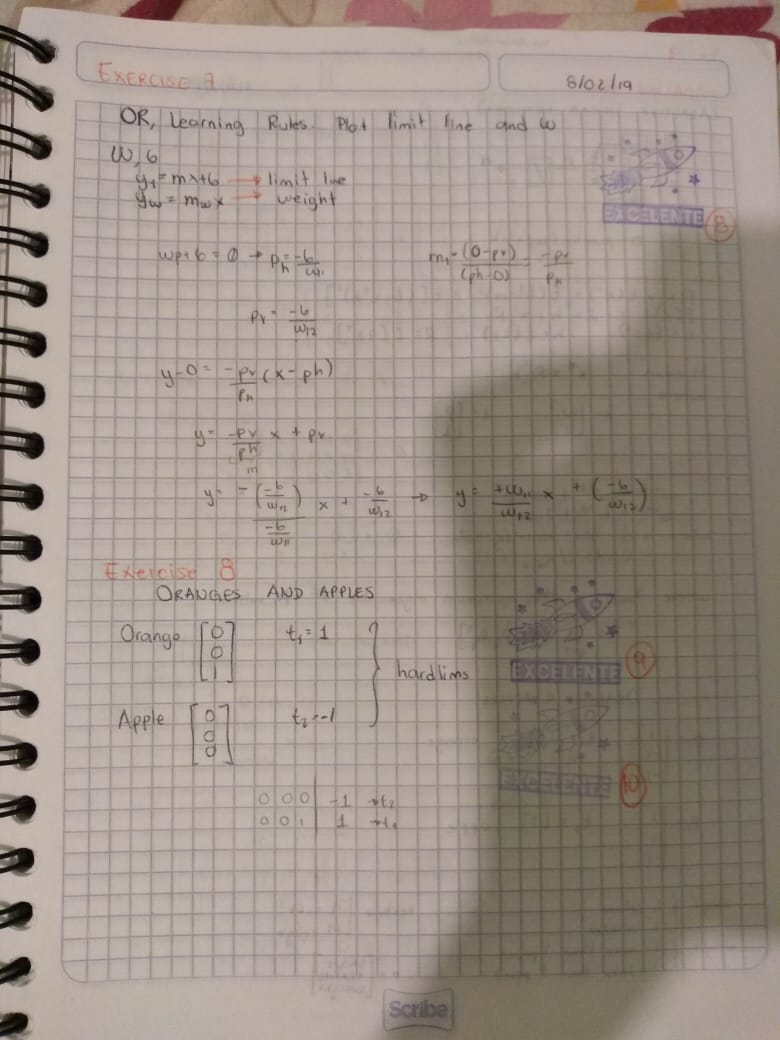 EXERCISE 7
8/02/19
OR, Learning Rules. Plot limit line and w
W, b
y₁ = mx+b → limit line
yw = mw x → weight
wp+b = 0 → Ph = -b/w₁₁
m₁ = (0-pv)/(ph-0) = -pv/ph
Pv = -b/w₁₂
y-0 = -pv/ph (x-ph)
y = -pv/ph x + pv
m
y = -(-b/w₁₂)/(-b/w₁₁) x + -b/w₁₂ → y = +w₁₁/w₁₂ x + (-b/w₁₂)
EXCELENTE 8
Exercise 8
ORANGES AND APPLES
Orange [0 0 1] t₁ = 1
hardlims
Apple [0 0 0] t₂ = -1
EXCELENTE 9
EXCELENTE 10
0 0 0 | -1 → t₂
0 0 1 | 1 → t₁
Scribe